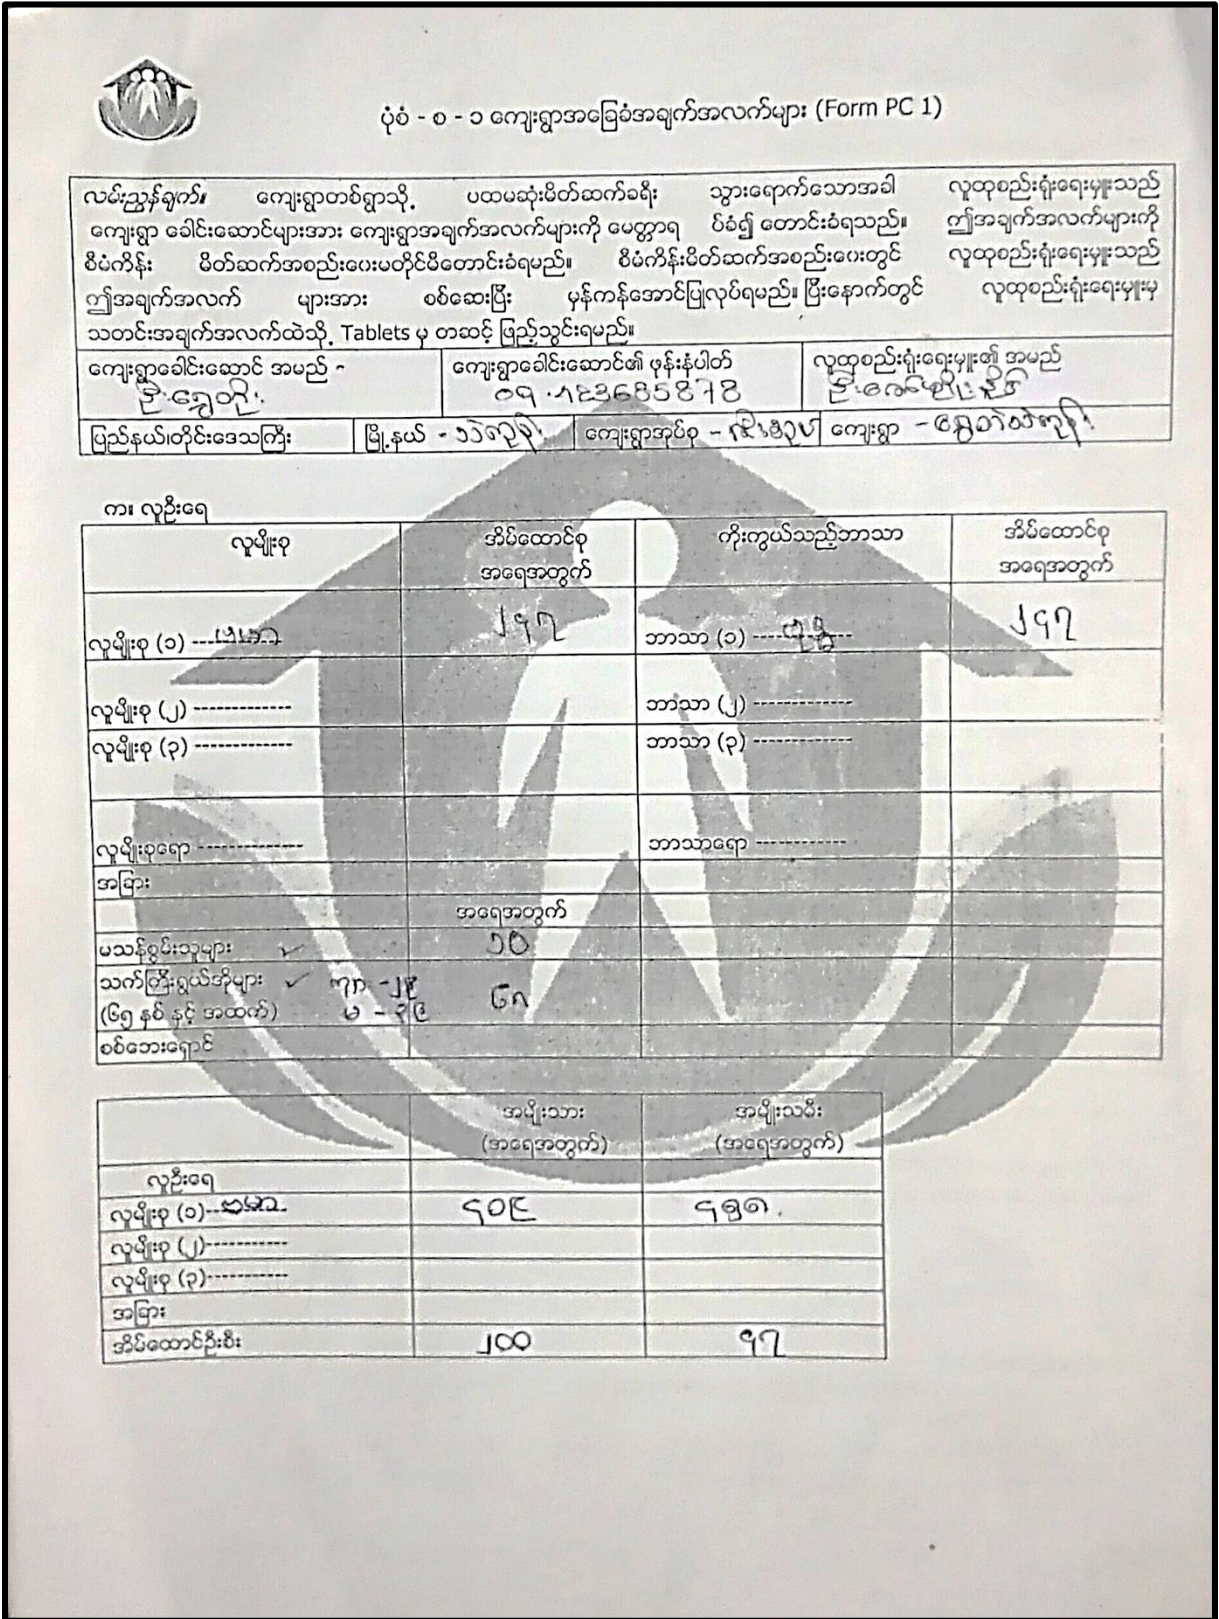 ပုံစံ - စ - ၁ ကျေးရွာအခြေခံအချက်အလက်များ (Form PC 1)
လမ်းညွှန်ချက်။ ကျေးရွာတစ်ရွာသို့ ပထမဆုံးမိတ်ဆက်ခရီး သွားရောက်သောအခါ လူထုစည်းရုံးရေးမှူးသည်
ကျေးရွာ ခေါင်းဆောင်များအား ကျေးရွာအချက်အလက်များကို မေတ္တာရ ပ်ခံ၍ တောင်းခံရသည်။ ဤအချက်အလက်များကို
စီမံကိန်း မိတ်ဆက်အစည်းဝေးမတိုင်မီတောင်းခံရမည်။ စီမံကိန်းမိတ်ဆက်အစည်းဝေးတွင် လူထုစည်းရုံးရေးမှူးသည်
ဤအချက်အလက် များအား စစ်ဆေးပြီး မှန်ကန်အောင်ပြုလုပ်ရမည်။ ပြီးနောက်တွင် လူထုစည်းရုံးရေးမှူးမှ
သတင်းအချက်အလက်ထဲသို့ Tablets မှ တဆင့် ဖြည့်သွင်းရမည်။
ကျေးရွာခေါင်းဆောင် အမည် - ကျေးရွာခေါင်းဆောင်၏ ဖုန်းနံပါတ် လူထုစည်းရုံးရေးမှူး၏ အမည်
ဦးရွှေတိုး 09.123685878
ပြည်နယ်၊တိုင်းဒေသကြီး မြို့နယ် - ကျေးရွာအုပ်စု - ကျေးရွာ -
က။ လူဦးရေ
လူမျိုးစု အိမ်ထောင်စု ကိုးကွယ်သည့်ဘာသာ အိမ်ထောင်စု
အရေအတွက် အရေအတွက်
လူမျိုးစု (၁) ---ဗမာ ၂၄၇ ဘာသာ (၁) ----ဗုဒ္ဓ--- ၂၄၇
လူမျိုးစု (၂) ------------- ဘာသာ (၂) -------------
လူမျိုးစု (၃) ------------- ဘာသာ (၃) -------------
လူမျိုးစုရော -------------- ဘာသာရော ------------
အခြား
အရေအတွက်
မသန်စွမ်းသူများ ✓ ၁၀
သက်ကြီးရွယ်အိုများ ✓ ကျား -၂၉ ၆၈
(၆၅ နှစ် နှင့် အထက်) မ - ၃၉
စစ်ဘေးရှောင်
အမျိုးသား အမျိုးသမီး
(အရေအတွက်) (အရေအတွက်)
လူဦးရေ
လူမျိုးစု (၁)--ဗမာ ၄၀၉
လူမျိုးစု (၂)-----------
လူမျိုးစု (၃)-----------
အခြား
အိမ်ထောင်ဦးစီး ၂၀၀ ၄၇